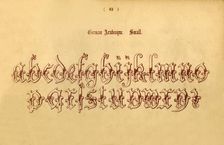 ( 43 )
German Arabesque. Small.
a b c d e f g h i j k l m n o
p q r s t u v w x y z